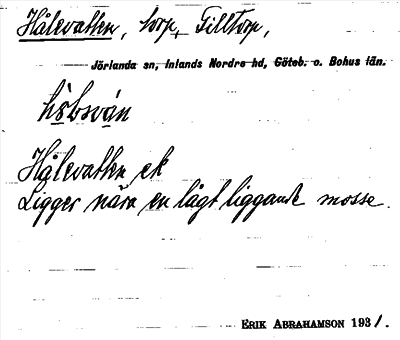 Hålevatten, torp, Tilltorp,
Jörlanda sn, Inlands Nordre hd, Göteb. o. Bohus län.
hòbsván
Hålevatten ek
Ligger nära en lågt liggande mosse.
ERIK ABRAHAMSON 1931.